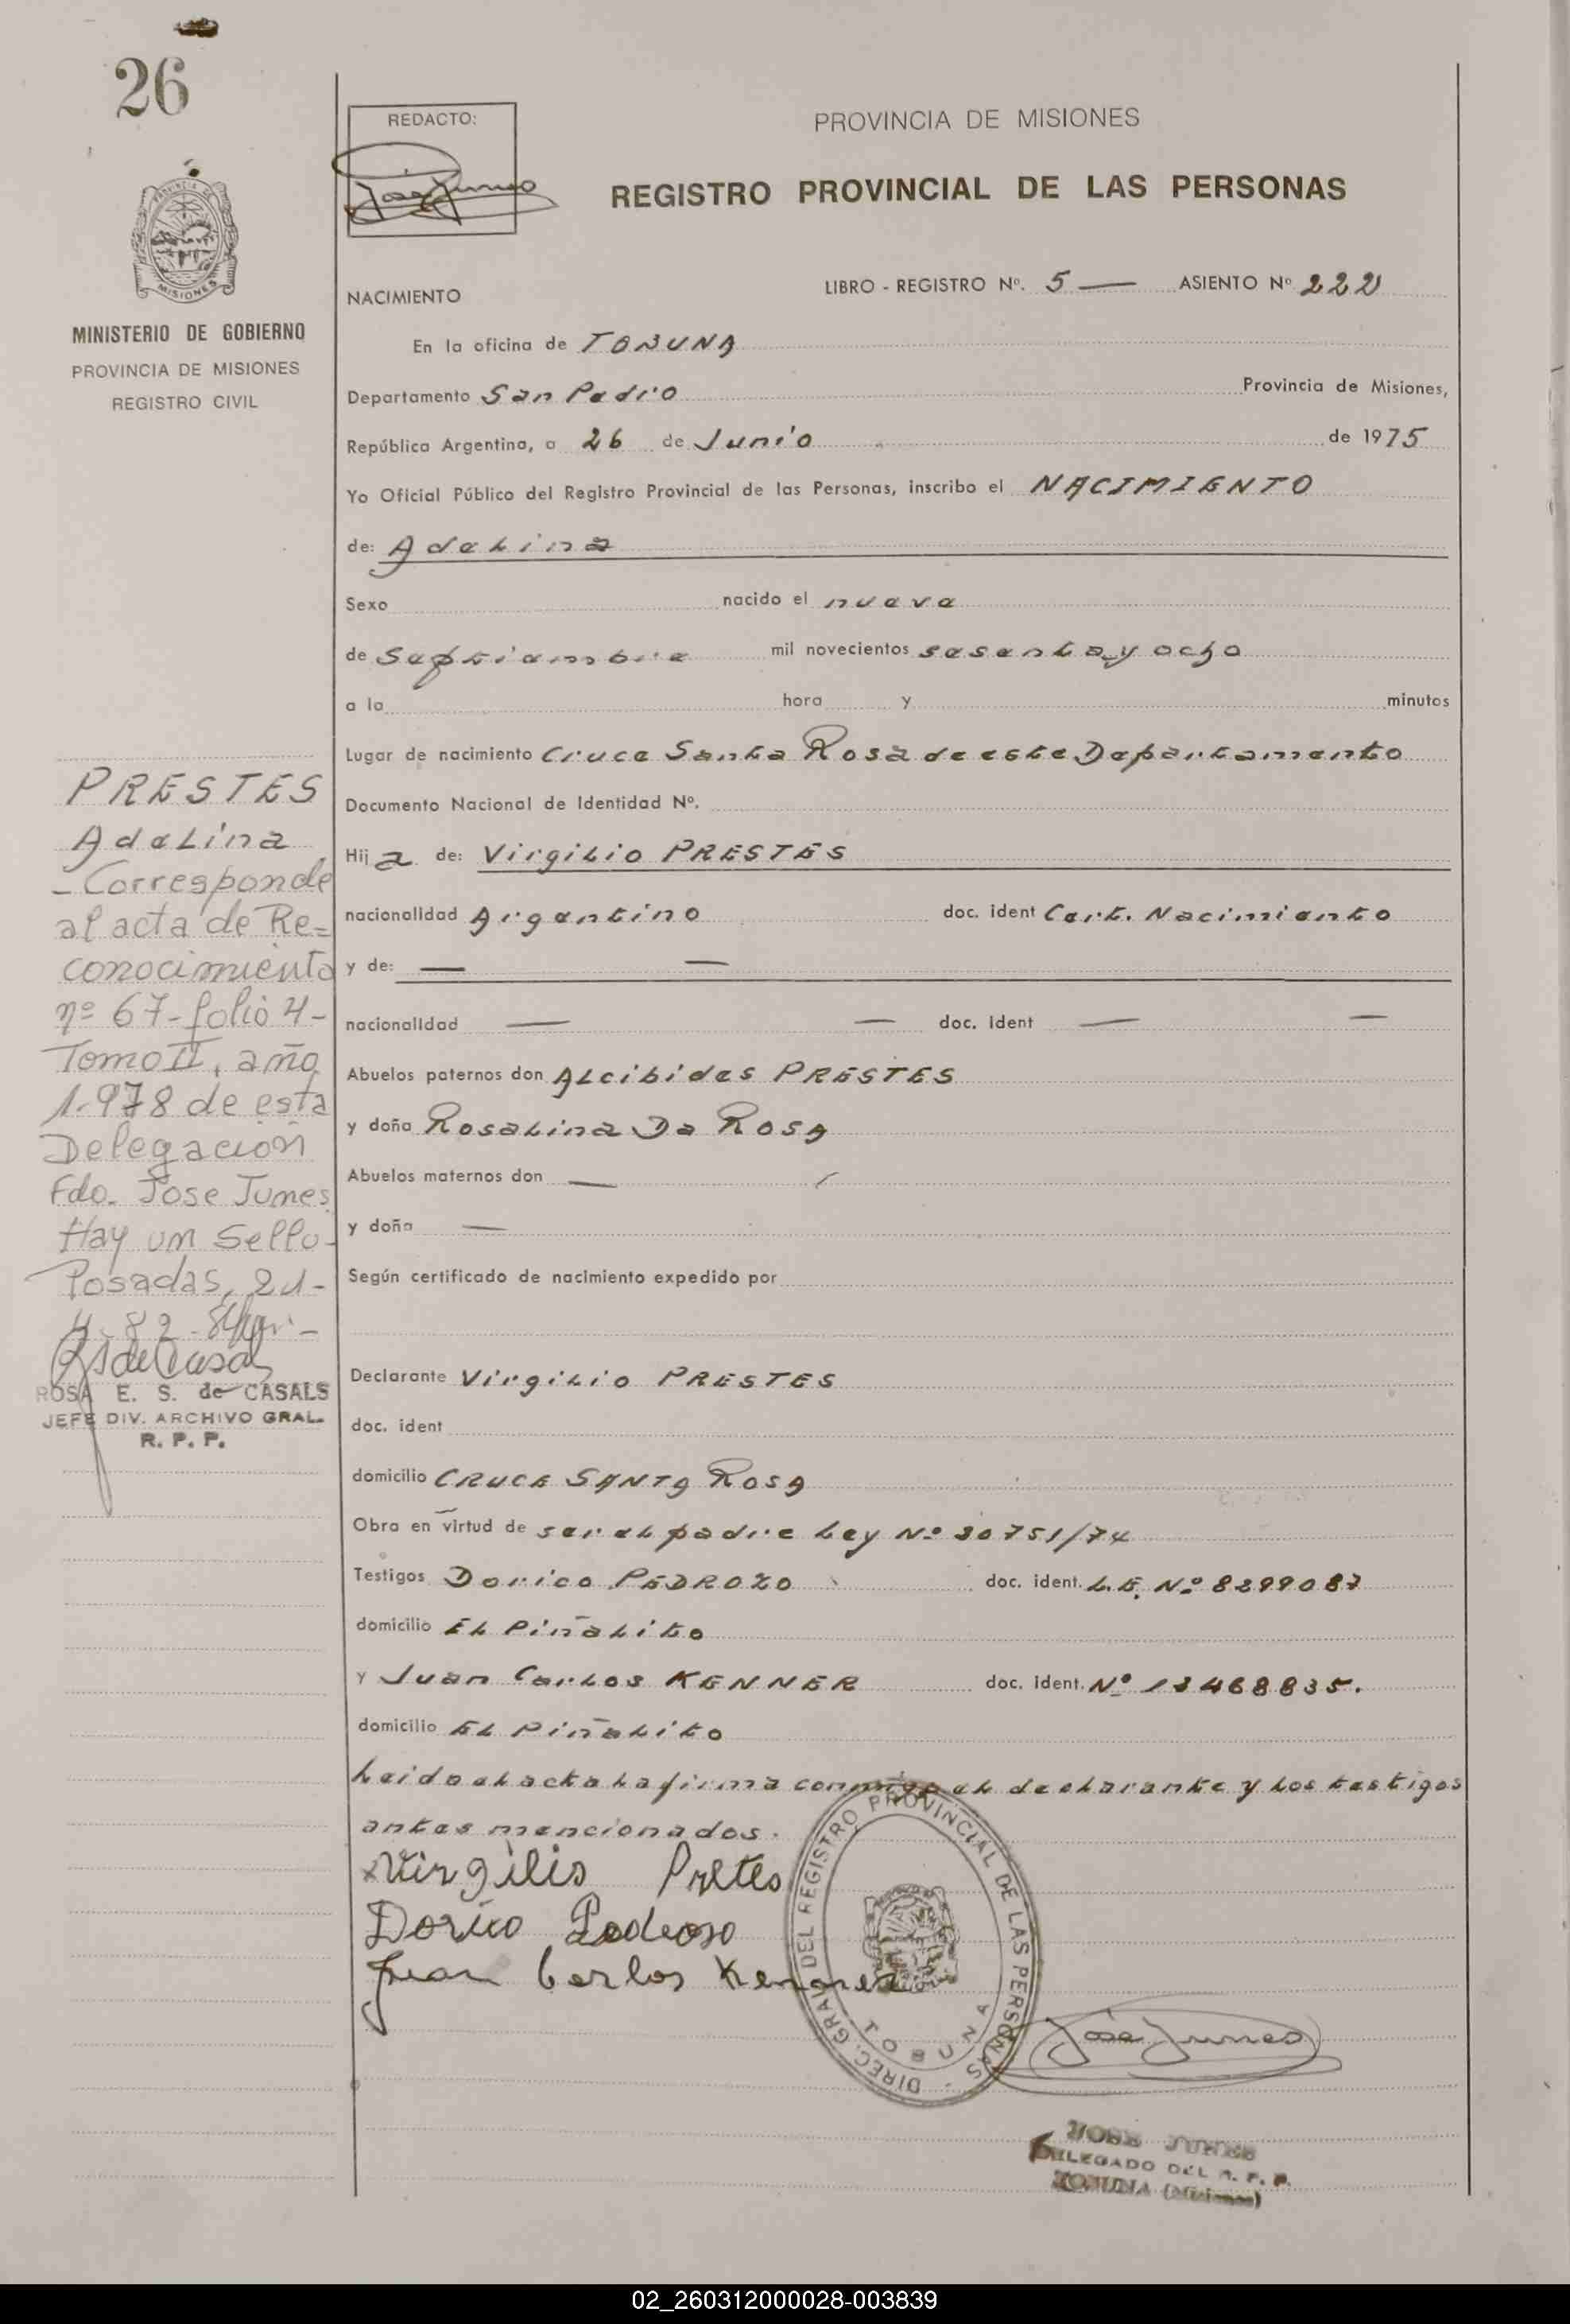 26
REDACTO:
José Junes
PROVINCIA DE MISIONES
REGISTRO PROVINCIAL DE LAS PERSONAS
MISIONES
MINISTERIO DE GOBIERNO
PROVINCIA DE MISIONES
REGISTRO CIVIL
NACIMIENTO LIBRO - REGISTRO Nº. 5 — ASIENTO Nº
En la oficina de TOBUNA
Departamento San Pedro Provincia de Misiones,
República Argentina, a 26 de Junio de 1975
Yo Oficial Público del Registro Provincial de las Personas, inscribo el NACIMIENTO
de: Adelina
Sexo nacido el nueve
de Septiembre mil novecientos sesenta y ocho
a la hora y minutos
Lugar de nacimiento Cruce Santa Rosa de este Departamento
Documento Nacional de Identidad Nº.
Hija de: Virgilio PRESTES
nacionalidad Argentino doc. ident Cert. Nacimiento
y de: — —
nacionalidad — — doc. ident — —
Abuelos paternos don Alcibides PRESTES
y doña Rosalina Da Rosa
Abuelos maternos don —
y doña —
Según certificado de nacimiento expedido por
Declarante Virgilio PRESTES
doc. ident
domicilio CRUCE SANTA ROSA
Obra en virtud de ser el padre Ley Nº 20751/74
Testigos Dorico PEDROZO doc. ident. L.E. Nº 8299087
domicilio El Piñalito
y Juan Carlos KENNER doc. ident. Nº 13468835.
domicilio El Piñalito
Leido el acta la firma conmigo el declarante y los testigos
antes mencionados.
Virgilio Pretes
Dorico Pedroso
Juan Carlos Kenner
DIREC. GRAL. DEL REGISTRO PROVINCIAL DE LAS PERSONAS -
TOBUNA
José Junes
JOSE JUNES
DELEGADO DEL R. P. P.
TOBUNA (Misiones)
PRESTES
Adelina
- Corresponde
al acta de Re=
conocimiento
nº 67 - folio 4 -
Tomo II, año
1.978 de esta
Delegación
Fdo. Jose Junes
Hay un Sello -
Posadas, 21 -
4 - 82 -
ROSA E. S. de CASALS
JEFE DIV. ARCHIVO GRAL.
R. P. P.
02_260312000028-003839